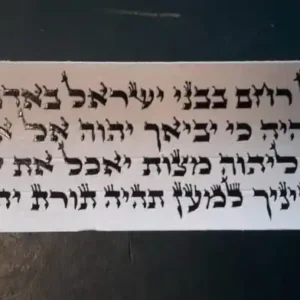 רחם בבני ישראל באד
היה כי יביאך יהוה אל
ליהוה מצות יאכל את
יניך למען תהיה תורת יה